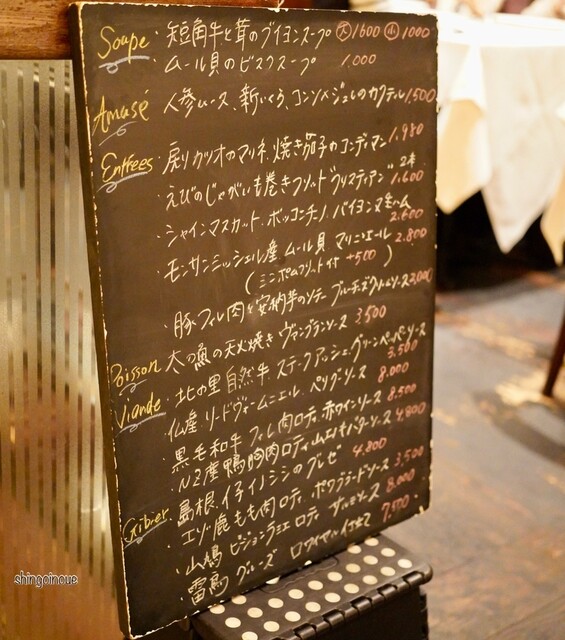 Soupe
・短角牛と茸のブイヨンスープ 大1600 小1000
・ムール貝のビスクスープ 1,000
Amusé
・人参ムース、新いくら、コンソメジュレのカクテル 1,500
Entrées
・戻りカツオのマリネ、焼き茄子のコンディマン 1,980
・えびのじゃがいも巻きフリット クリスティアン 2本 1,600
・シャインマスカット、ボッコンチーノ、バイヨンヌ生ハム 2,600
・モンサンミッシェル産 ムール貝 マリニエール 2,800
(ミニポムフリット付 +500)
・豚フィレ肉と安納芋のソテー ブルーチーズクリームソース
Poisson
太刀魚の天火焼き ヴァンブランソース 3,500
Viande
・北の里自然牛 ステークアッシェ グリーンペッパーソース 3,500
仏産 リードヴォー ムニエル ペリグーソース 8,000
黒毛和牛 フィレ肉ロティ 赤ワインソース 8,500
・NZ産 鴨胸肉ロティ 4,800
Gibier
島根、仔イノシシのブレゼ 4,800
・エゾ鹿もも肉ロティ ポワヴラードソース 3,500
・山鳩 ピジョンラミエ ロティ サルミソース 8,000
・雷鳥 グルーズ ロワイヤル仕立て
shingoinoue